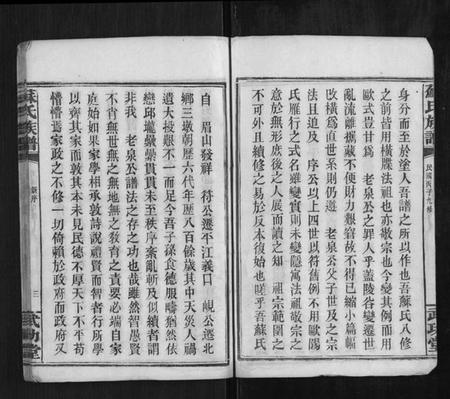 蘇氏族譜
民國丙子九修
武功堂
身分而至於塗人吾譜之所以作也吾蘇氏八修
之前皆用橫牒法祖也亦敬宗也今變其例而用
歐式豈甘爲 老泉公之罪人乎蓋陵谷變遷世
亂流離攜藏不便財力艱窘故不得已縮小篇幅
改橫爲直世系則仍遵 老泉公父子世及之宗
法且迨及 序公以上四世以符舊例不用歐陽
氏雁行之式名雖變實則未變隱寓法祖敬宗之
意於無形庶後之人展而讀之知 祖宗範圍之
不可外且續修之易於反本復始也嗟乎吾蘇氏
自 眉山發祥 符公遷平江義口 峴公遷北
鄉三墩朝歷六代年歷八百餘歲其中天災人禍
遺大投艱不一而足今吾子孫食德服疇猶然依
戀邱壠纍纍貫貫未至秩序紊亂斬及似續者謂
非我 老泉公譜法之存之功也哉雖然智愚賢
不肖無世無之無地無之敎育之責要必端自家
庭始如果家學相承敦詩說禮賢而智者行所學
以齊其家而敦其本未見民德不厚天下不平苟
懵懵焉家政之不修一切倚賴於政府而政府又
蘇氏族譜
新序
三
武功堂